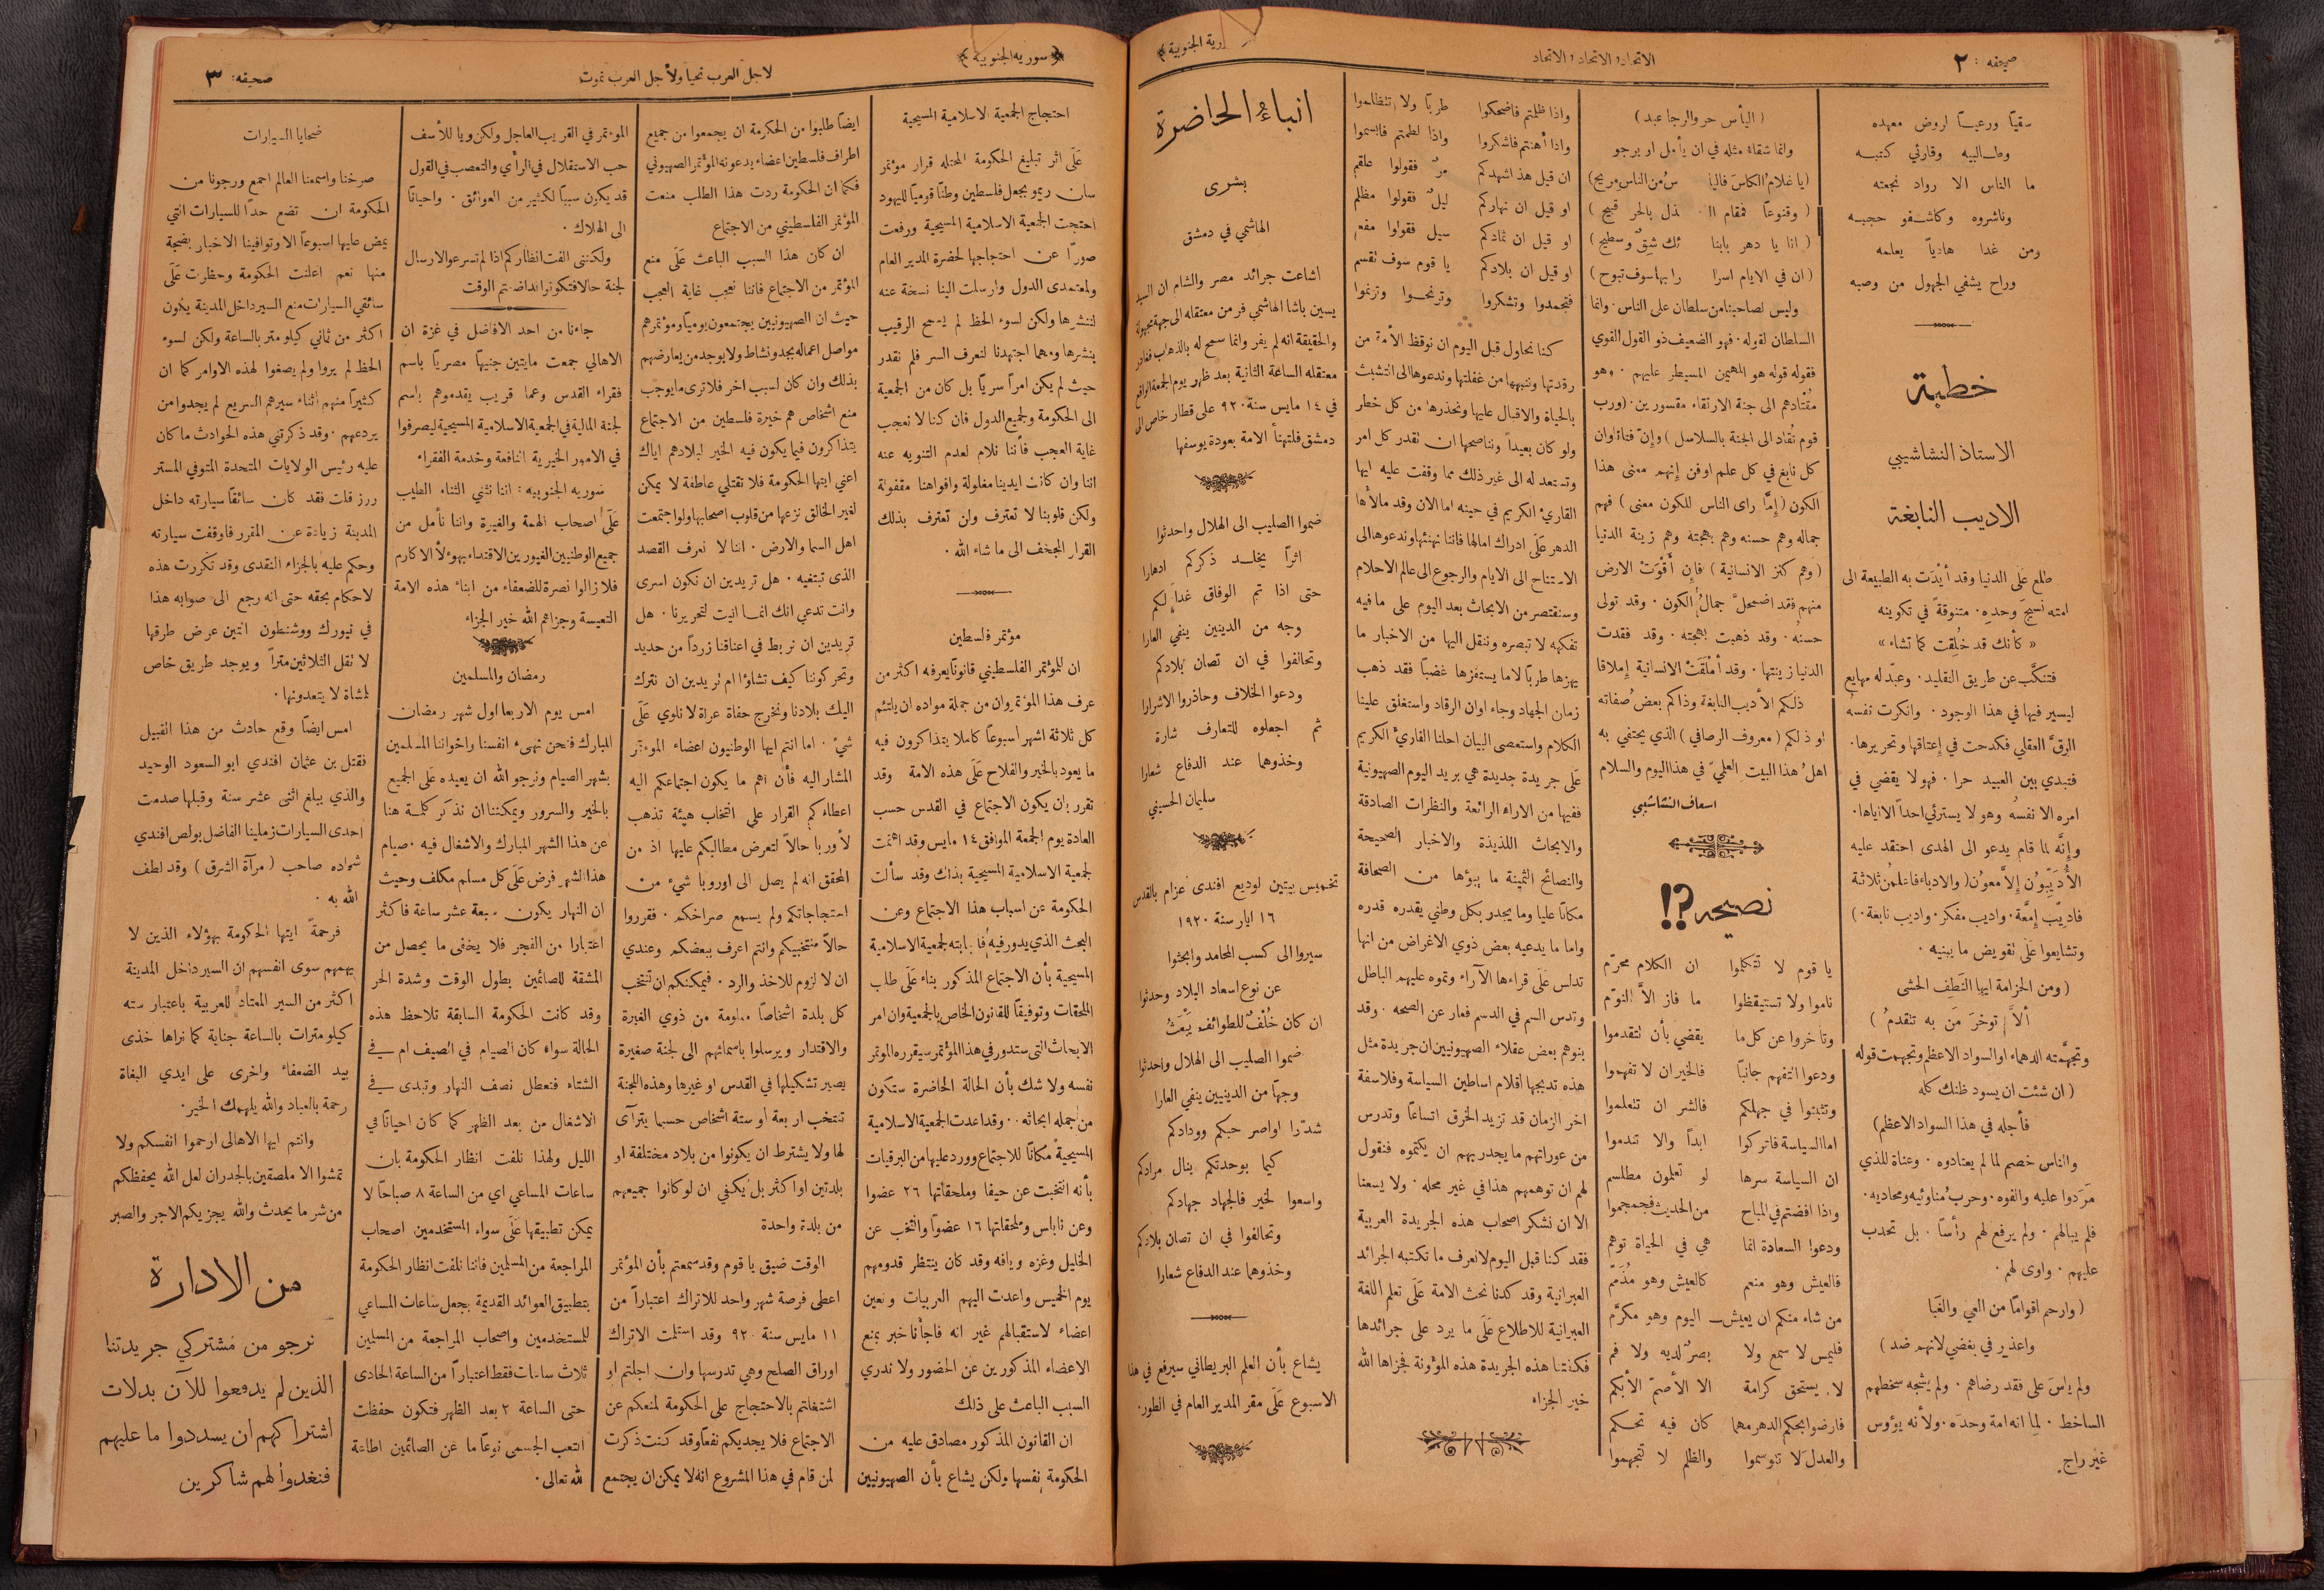 صحيفه : ٢
الاتحاد، الاتحاد، الاتحاد
سقيًا ورعيًا لروض معهده
وطالبيه وقارئي كتبه
ما الناس الا رواد نجعته
وناشروه وكاشفو حجبه
ومن غدا هاديًا يعلمه
وراح يشفي الجهول من وصبه
خطبة
الاستاذ النشاشيبي
الاديب النابغة
طلع عَلَى الدنيا وقد أيْدَت به الطبيعة الى
امته نسيجَ وحدِه. متنوقةً في تكوينه
« كأنك قد خُلِقت كما تشاء »
فتنكَّب عن طريق التقليد. وعبّد له مهايع
ليسير فيها في هذا الوجود. وانكرت نفسُه
الرقَّ العقلي فكدحت في إعتاقها وتحريرها.
فتبدي بين العبيد حرا. فهو لا يقضي في
امره الا نفسُه وهو لا يسترئي احداً الا اياها.
وإنَّه لما قام يدعو الى الهدى احتقد عليه
الأُدَيِّبُون إِلاَّ معوُن (والادباء فاعلمُن ثلاثة
فاديّب إمَّعة. واديب مفكر. واديب نابغة.)
وتشايعوا عَلَى تقويض ما يبنيه.
( ومن الحزامة ايها النَطِف الحشى
ألاَّ توخرَ مَن به تتقدمُ )
وتجهَّمته الدهماء او السواد الاعظم وتجهمت قوله
( ان شئت ان يسود ظنك كله
فأجله في هذا السواد الاعظم)
والناس خصم لما لم يعتادوه. وعناة للذي
مَرَدوا عليه والفوه. وحرب مُناوئيه ومحاديه.
فلم يبالهم. ولم يرفع لهم رأسًا. بل تحدب
عليهم. واوى لهم.
( وارحم اقوامًا من العي والغبا
واعذير في بغضي لانهم ضد )
ولم ياسَ على فقد رضاهم. ولم يشجه سخطهم
الساخط. لما انه امة وحده. ولأنه يؤوس
غير راج.
( اليأس حر والرجا عبد )
وانما شقاة مثله في ان يأمل او يرجو
(يا غلامُ الكاسَ فاليا سُ من الناس مريح)
( وقنوعًا فمقام ال ذل بالحر قبيح )
( انا يا دهر بابنا ئك شِقّ وسطيح )
( ان في الايام اسرا را بها سوف تبوح )
وليس لصاحبنا من سلطان على الناس. وانما
السلطان لقوله. فهو الضعيف ذو القول القوي
فقوله قوله هو المهيمن المسيطر عليهم. وهو
مقْتادهم الى جنة الارتقاء مقسورين. (ورب
قوم تُقاد الى الجنة بالسلاسل ) وإنّ فتاةً وان
كل نابغ في كل علم او فن إنهم معنى هذا
الكون ( إمَّا راى الناس للكون معنى ) فهم
جماله وهم حسنه وهم بهجته وهم زينة الدنيا
( وهم كنز الانسانية ) فإن أَقْوَتْ الارض
منهم فقد اضمحلَّ جمالُ الكون. وقد تولى
حسنُه. وقد ذهبت بهجته. وقد فقدت
الدنيا زينتها. وقد أمْلَقَتْ الانسانية إملاقا
ذلكم الأديب النابغة وذاكم بعض صفاته
او ذلكم ( معروف الرصافي ) الذي يحتفي به
اهلُ هذا البيتِ العلميّ في هذا اليوم والسلام
اسعاف النشاشيبي
نصيحه ؟!
يا قوم لا تتكلموا ان الكلام محرّم
ناموا ولا تستيقظوا ما فاز الاَّ النوّم
وتاخروا عن كل ما يقضي بأن تتقدموا
ودعوا التفهم جانبًا فالخير ان لا تفهموا
وتثبتوا في جهلكم فالشر ان تتعلموا
اما السياسة فاتركوا ابداً والا تندموا
ان السياسة سرها لو تعلمون مطلسم
واذا افضتم في المباح من الحديث فجمجموا
ودعوا السعادة انما هي في الحياة توهم
فالعيش وهو منعم كالعيش وهو مُذَمّم
من شاء منكم ان يعيش اليوم وهو مكرَّم
فليمس لا سمع ولا بصرٌ لديه ولا فم
لا يستحق كرامة الا الأصمّ الأبكم
فارضوا بحكم الدهر مهما كان فيه تحكم
والعدل لا تتوسموا والظلم لا تتجهموا
واذا ظلمتم فاضحكوا طربًا ولا تتظلموا
واذا أُهنتم فاشكروا واذا لطمتم فابسموا
ان قيل هذا شهدكم مرٌ فقولوا علقم
او قيل ان نهاركم ليلٌ فقولوا مظلم
او قيل ان ثمادكم سيل فقولوا مفعم
او قيل ان بلادكم يا قوم سوف تقسم
فتحمدوا وتشكروا وترنحوا وترنموا
كنا نحاول قبل اليوم ان نوقظ الأمة من
رقدتها وننبهها من غفلتها وندعوها الى التشبث
بالحياة والاقبال عليها ونحذرها من كل خطر
ولو كان بعيداً ونناصحها ان تقدر كل امر
وتستعد له الى غير ذلك مما وقفت عليه ايها
القارئ الكريم في حينه اما الان وقد مالأها
الدهر عَلَى ادراك امالها فاننا نهنئها وندعوها الى
الاستنتاح الى الايام والرجوع الى عالم الاحلام
وسنقتصر من الابحاث بعد اليوم على ما فيه
تفكهه لا تبصره وننقل اليها من الاخبار ما
يهزها طربًا لا ما يستفزها غضبًا فقد ذهب
زمان الجهاد وجاء اوان الرقاد واستغلق علينا
الكلام واستعصى البيان احلنا القارئ الكريم
عَلَى جريدة جديدة هي بريد اليوم الصهيونية
ففيها من الاراء الرائعة والنظرات الصادقة
والابحاث اللذيذة والاخبار الصحيحة
والنصائح الثمينة ما يبؤها من الصحافة
مكانًا عليا وما يجدر بكل وطني يقدره قدره
واما ما يدعيه بعض ذوي الاغراض من انها
تدلس عَلَى قراءها الآراء وتموه عليهم الباطل
وتدس السم في الدسم فعار عن الصحه. وقد
ينوهم بعض عقلاء الصهيونيين ان جريدة مثل
هذه تدبجها اقلام اساطين السياسة وفلاسفة
اخر الزمان قد تزيد الخرق اتساعًا وتدرس
من عوراتهم ما يجدر بهم ان يكتموه فنقول
لهم ان توهمهم هذا في غير محله. ولا يسعنا
الا ان نشكر اصحاب هذه الجريدة العربية
فقد كنا قبل اليوم لا نعرف ما تكتبه الجرائد
العبرانية وقد كدنا نحث الامة عَلَى تعلم اللغة
العبرانية للاطلاع عَلَى ما يرد على جرائدها
فكفتنا هذه الجريدة هذه المؤونة فجزاها الله
خير الجزاء
انباء الحاضرة
بشرى
الهاشمي في دمشق
اشاعت جرائد مصر والشام ان السيد
يسين باشا الهاشمي فر من معتقله الى جهة مجهولة
والحقيقة انه لم يفر وانما سمح له بالذهاب فغادر
معتقله الساعة الثانية بعد ظهر يوم الجمعة الواقع
في ١٤ مايس سنة ٩٢٠ على قطار خاص الى
دمشق فلتهنأ الامة بعودة يوسفها
ضموا الصليب الى الهلال واحدثوا
اثرًا يخلد ذكركم ادهارا
حتى اذا تم الوفاق غداً لكم
وجه من الدينين ينفي العارا
وتحالفوا في ان تصان بلادكم
ودعوا الخلاف وحاذروا الاشرارا
ثم اجعلوه للتعارف شارة
وخذوهما عند الدفاع شعارا
سليمان الحسيني
تخميس بيتين لوديع افندي عزام بالقدس
١٦ ايار سنة ١٩٢٠
سيروا الى كسب المحامد وابحثوا
عن نوع اسعاد البلاد وحدثوا
ان كان خُلْفٌ للطوائف يَبْعَثُ
ضموا الصليب الى الهلال واحدثوا
وجهًا من الدينيين ينفي العارا
شدّوا اواصر حبكم وودادكم
كيما بوحدتكم ينال مرادكم
واسعوا لخير فالجهاد جهادكم
وتحالفوا في ان تصان بلادكم
وخذوهما عند الدفاع شعارا
يشاع بأن العلم البريطاني سيرفع في هذا
الاسبوع عَلَى مقر المدير العام في الطور.
﴿سوريه الجنوبية﴾
لاجل العرب نحيا ولأجل العرب نموت
صحيفه : ٣
احتجاج الجمعية الاسلامية المسيحية
عَلَى اثر تبليغ الحكومة المحتله قرار مؤتمر
سان ريمو بجعل فلسطين وطنًا قوميًا لليهود
احتجت الجمعية الاسلامية المسيحية ورفعت
صورًا عن احتجاجها لحضرة المدير العام
ولمعتمدي الدول وارسلت الينا نسخة عنه
لننشرها ولكن لسوء الحظ لم يسمح الرقيب
بنشرها ومهما اجتهدنا لنعرف السر فلم نقدر
حيث لم يكن امراً سريًا بل كان من الجمعية
الى الحكومة ولجميع الدول فان كنا لا نعجب
غاية العجب فأننا نلام لعدم التنويه عنه
اننا وان كانت ايدينا مغلولة وافواهنا مقفولة
ولكن قلوبنا لا تعترف ولن تعترف بذلك
القرار المجحف الى ما شاء الله.
مؤتمر فلسطين
ان للمؤتمر الفلسطيني قانونًا يعرفه اكثر من
عرف هذا المؤتمر وان من جملة مواده ان يلتئم
كل ثلاثة اشهر اسبوعًا كاملا يتذاكرون فيه
ما يعود بالخير والفلاح عَلَى هذه الامة وقد
تقرر بان يكون الاجتماع في القدس حسب
العادة يوم الجمعة الموافق ١٤ مايس وقد اهتمت
لجمعية الاسلامية المسيحية بذلك وقد سألت
الحكومة عن اسباب هذا الاجتماع وعن
البحث الذي يدور فيه فأجابته لجمعية الاسلامية
المسيحية بأن الاجتماع المذكور بناء عَلَى طلب
الملحقات وتوفيقًا للقانون الخاص بالجمعية وان امر
الابحاث التى ستدور في هذا المؤتمر سيقرره المؤتمر
نفسه ولا شك بأن الحالة الحاضرة ستكون
من جمله ابحاثه.. وقد اعدت الجمعية الاسلامية
المسيحية مكانًا للاجتماع وورد عليها من البرقيات
بأنه انتخبت عن حيفا وملحقاتها ٢٦ عضوا
وعن نابلس وملحقاتها ١٦ عضوًا وانتخب عن
الخليل وغزه ويافه وقد كان ينتظر قدومهم
يوم الخميس واعدت اليهم العربيات وتعين
اعضاء لاستقبالهم غير انه فاجأنا خبر بمنع
الاعضاء المذكورين عن الحضور ولا ندري
السبب الباعث على ذلك
ان القانون المذكور مصادق عليه من
الحكومة نفسها ولكن يشاع بأن الصهيونيين
ايضًا طلبوا من الحكومة ان يجمعوا من جميع
اطراف فلسطين اعضاء يدعونه المؤتمر الصهيوني
فكما ان الحكومة ردت هذا الطلب منعت
المؤتمر الفلسطيني من الاجتماع
ان كان هذا السبب الباعث عَلَى منع
المؤتمر من الاجتماع فاننا نعجب غاية العجب
حيث ان الصهيونيين يجتمعون يوميًا ومؤتمرهم
مواصل اعماله بجد ونشاط ولا يوجد من يعارضهم
بذلك وان كان لسبب اخر فلا ترى ما يوجب
منع اشخاص هم خيرة فلسطين من الاجتماع
يتذاكرون فيما يكون فيه الخير لبلادهم اياك
اعني ايتها الحكومة فلا تقتلي عاطفة لا يمكن
لغير الخالق نزعها من قلوب اصحابها ولو اجتمعت
اهل السما والارض. اننا لا نعرف القصد
الذى تبتغيه. هل تريدين ان نكون اسرى
وانت تدعي انك انما اتيت لتحريرنا. هل
تريدين ان تربط في اعناقنا زرداً من حديد
وتحركوننا كيف تشاؤا ام تريدين ان نترك
اليك بلادنا ونخرج حفاة عراة لا نلوي عَلَى
شيء. اما انتم ايها الوطنيون اعضاء المؤتمر
المشار اليه فأن اهم ما يكون اجتماعكم اليه
اعطاءكم القرار على انتخاب هيئة تذهب
لأوربا حالاً لتعرض مطالبكم عليها اذ من
المحقق انه لم يصل الى اوروبا شيء من
احتجاجاتكم ولم يسمع صراخكم. فقرروا
حالاً منتخبيكم وانتم اعرف ببعضكم وعندي
ان لا لزوم للاخذ والرد. فيمكنكم ان تنتخب
كل بلدة اشخاصًا معلومة من ذوي الغيرة
والاقتدار ويرسلوا باسمائهم الى لجنة صغيرة
يصير تشكيلها في القدس او غيرها وهذه اللجنة
تنتخب اربعة او ستة اشخاص حسبما يترآى
لها ولا يشترط ان يكونوا من بلاد مختلفة او
بلدتين او اكثر بل يكفي ان لو كانوا جميعهم
من بلدة واحدة
الوقت ضيق يا قوم وقد سمعتم بأن المؤتمر
اعطى فرصة شهر واحد للاتراك اعتباراً من
١١ مايس سنة ٩٢٠ وقد استلمت الاتراك
اوراق الصلح وهي تدرسها وان اجلتم او
اشتغلتم بالاحتجاج على الحكومة لمنعكم عن
الاجتماع فلا يجديكم نفعًا وقد كنت ذكرت
لمن قام في هذا المشروع انه لا يمكن ان يجتمع
المؤتمر في القريب العاجل ولكن ويا للأسف
حب الاستقلال في الرأي والتعصب في القول
قد يكون سببًا لكثير من العوائق. واحيانًا
الى الهلاك.
ولكنني الفت انظاركم اذا لم تسرعوا لارسال
لجنة حالا فتكونوا قد اضعتم الوقت
جاءنا من احد الافاضل في غزة ان
الاهالي جمعت مايتين جنيهًا مصريًا باسم
فقراء القدس وعما قريب يقدموهم باسم
لجنة المالية في الجمعية الاسلامية المسيحية ليصرفوا
في الامور الخيرية النافعة وخدمة الفقراء
سوريه الجنوبيه : اننا نثني الثناء الطيب
عَلَى اصحاب الهمة والغيرة واننا نأمل من
جميع الوطنيين الغيورين الاقتداء بهؤلأ الاكارم
فلا زالوا نصرة للضعفاء من ابناء هذه الامة
التعيسة وجزاهم الله خير الجزاء
رمضان والمسلمين
امس يوم الاربعا اول شهر رمضان
المبارك فنحن نهنئ انفسنا واخواننا المسلمين
بشهر الصيام ونرجو الله ان يعيده عَلَى الجميع
بالخير والسرور ويمكننا ان نذكر كلمة هنا
عن هذا الشهر المبارك والاشغال فيه. صيام
هذا الشهر فرض عَلَى كل مسلم مكلف وحيث
ان النهار يكون سبعة عشر ساعة فاكثر
اعتبارا من الفجر فلا يخفى ما يحصل من
المشقة للصائمين بطول الوقت وشدة الحر
وقد كانت الحكومة السابقة تلاحظ هذه
الحالة سواء كان الصيام في الصيف ام في
الشتاء فتعطل نصف النهار وتبدى في
الاشغال من بعد الظهر كما كان احيانًا في
الليل ولهذا نلفت انظار الحكومة بان
ساعات المساعي اي من الساعة ٨ صباحًا لا
يمكن تطبيقها عَلَى سواء المستخدمين اصحاب
المراجعة من المسلمين فاننا نلفت انظار الحكومة
بتطبيق العوائد القديمة بجعل ساعات المساعي
للمستخدمين واصحاب المراجعة من المسلمين
ثلاث ساعات فقط اعتباراً من الساعة الحادى
حتى الساعة ٢ بعد الظهر فتكون حفظت
التعب الجسمى نوعًا ما عن الصائمين اطاعة
لله تعالى.
ضحايا السيارات
صرخنا واسمعنا العالم اجمع ورجونا من
الحكومة ان تضع حدًا للسيارات التي
يمض عليها اسبوعًا الا وتوافينا الاخبار بضحية
منها نعم اعلنت الحكومة وحظرت عَلَى
سائقي السيارات منع السير داخل المدينة يكون
اكثر من ثماني كيلو متر بالساعة ولكن لسوء
الحظ لم يروا ولم يصغوا لهذه الاوامر كما ان
كثيراً منهم اثناء سيرهم السريع لم يجدوا من
يردعهم. وقد ذكرتني هذه الحوادث ما كان
عليه رئيس الولايات المتحدة المتوفي المستر
روزفلت فقد كان سائقًا سيارته داخل
المدينة زيادة عن المقرر فاوقفت سيارته
وحكم عليه بالجزاء النقدى وقد تكررت هذه
لاحكام بحقه حتى انه رجع الى صوابه هذا
في نيورك ووشنطون اتين عرض طرقها
لا تقل الثلاثين متراً ويوجد طريق خاص
لمشاة لا يتعدونها.
امس ايضًا وقع حادث من هذا القبيل
فقتل بن عثمان افندي ابو السعود الوحيد
والذي يبلغ اثنى عشر سنة وقبلها صدمت
احدى السيارات زميلنا الفاضل بولص افندي
شحاده صاحب ( مرآة الشرق ) وقد لطف
الله به.
فرحمةً ايتها الحكومة بهؤلاء الذين لا
يهمهم سوى انفسهم ان السير داخل المدينة
اكثر من السير المعتاد للعربية باعتبار سته
كيلو مترات بالساعة جناية كما نراها خذى
بيد الضعفاء واخرى على ايدي البغاة
رحمة بالعباد والله يلهمك الخير.
وانتم ايها الاهالى ارحموا انفسكم ولا
تمشوا الا ملصقين بالجدران لعل الله يحفظكم
من شر ما يحدث والله يجزيكم الاجر والصبر
من الادارة
نرجو من مشتركي جريدتنا
الذين لم يدفعوا للآن بدلات
اشتراكهم ان يسددوا ما عليهم
فنغدوا لهم شاكرين